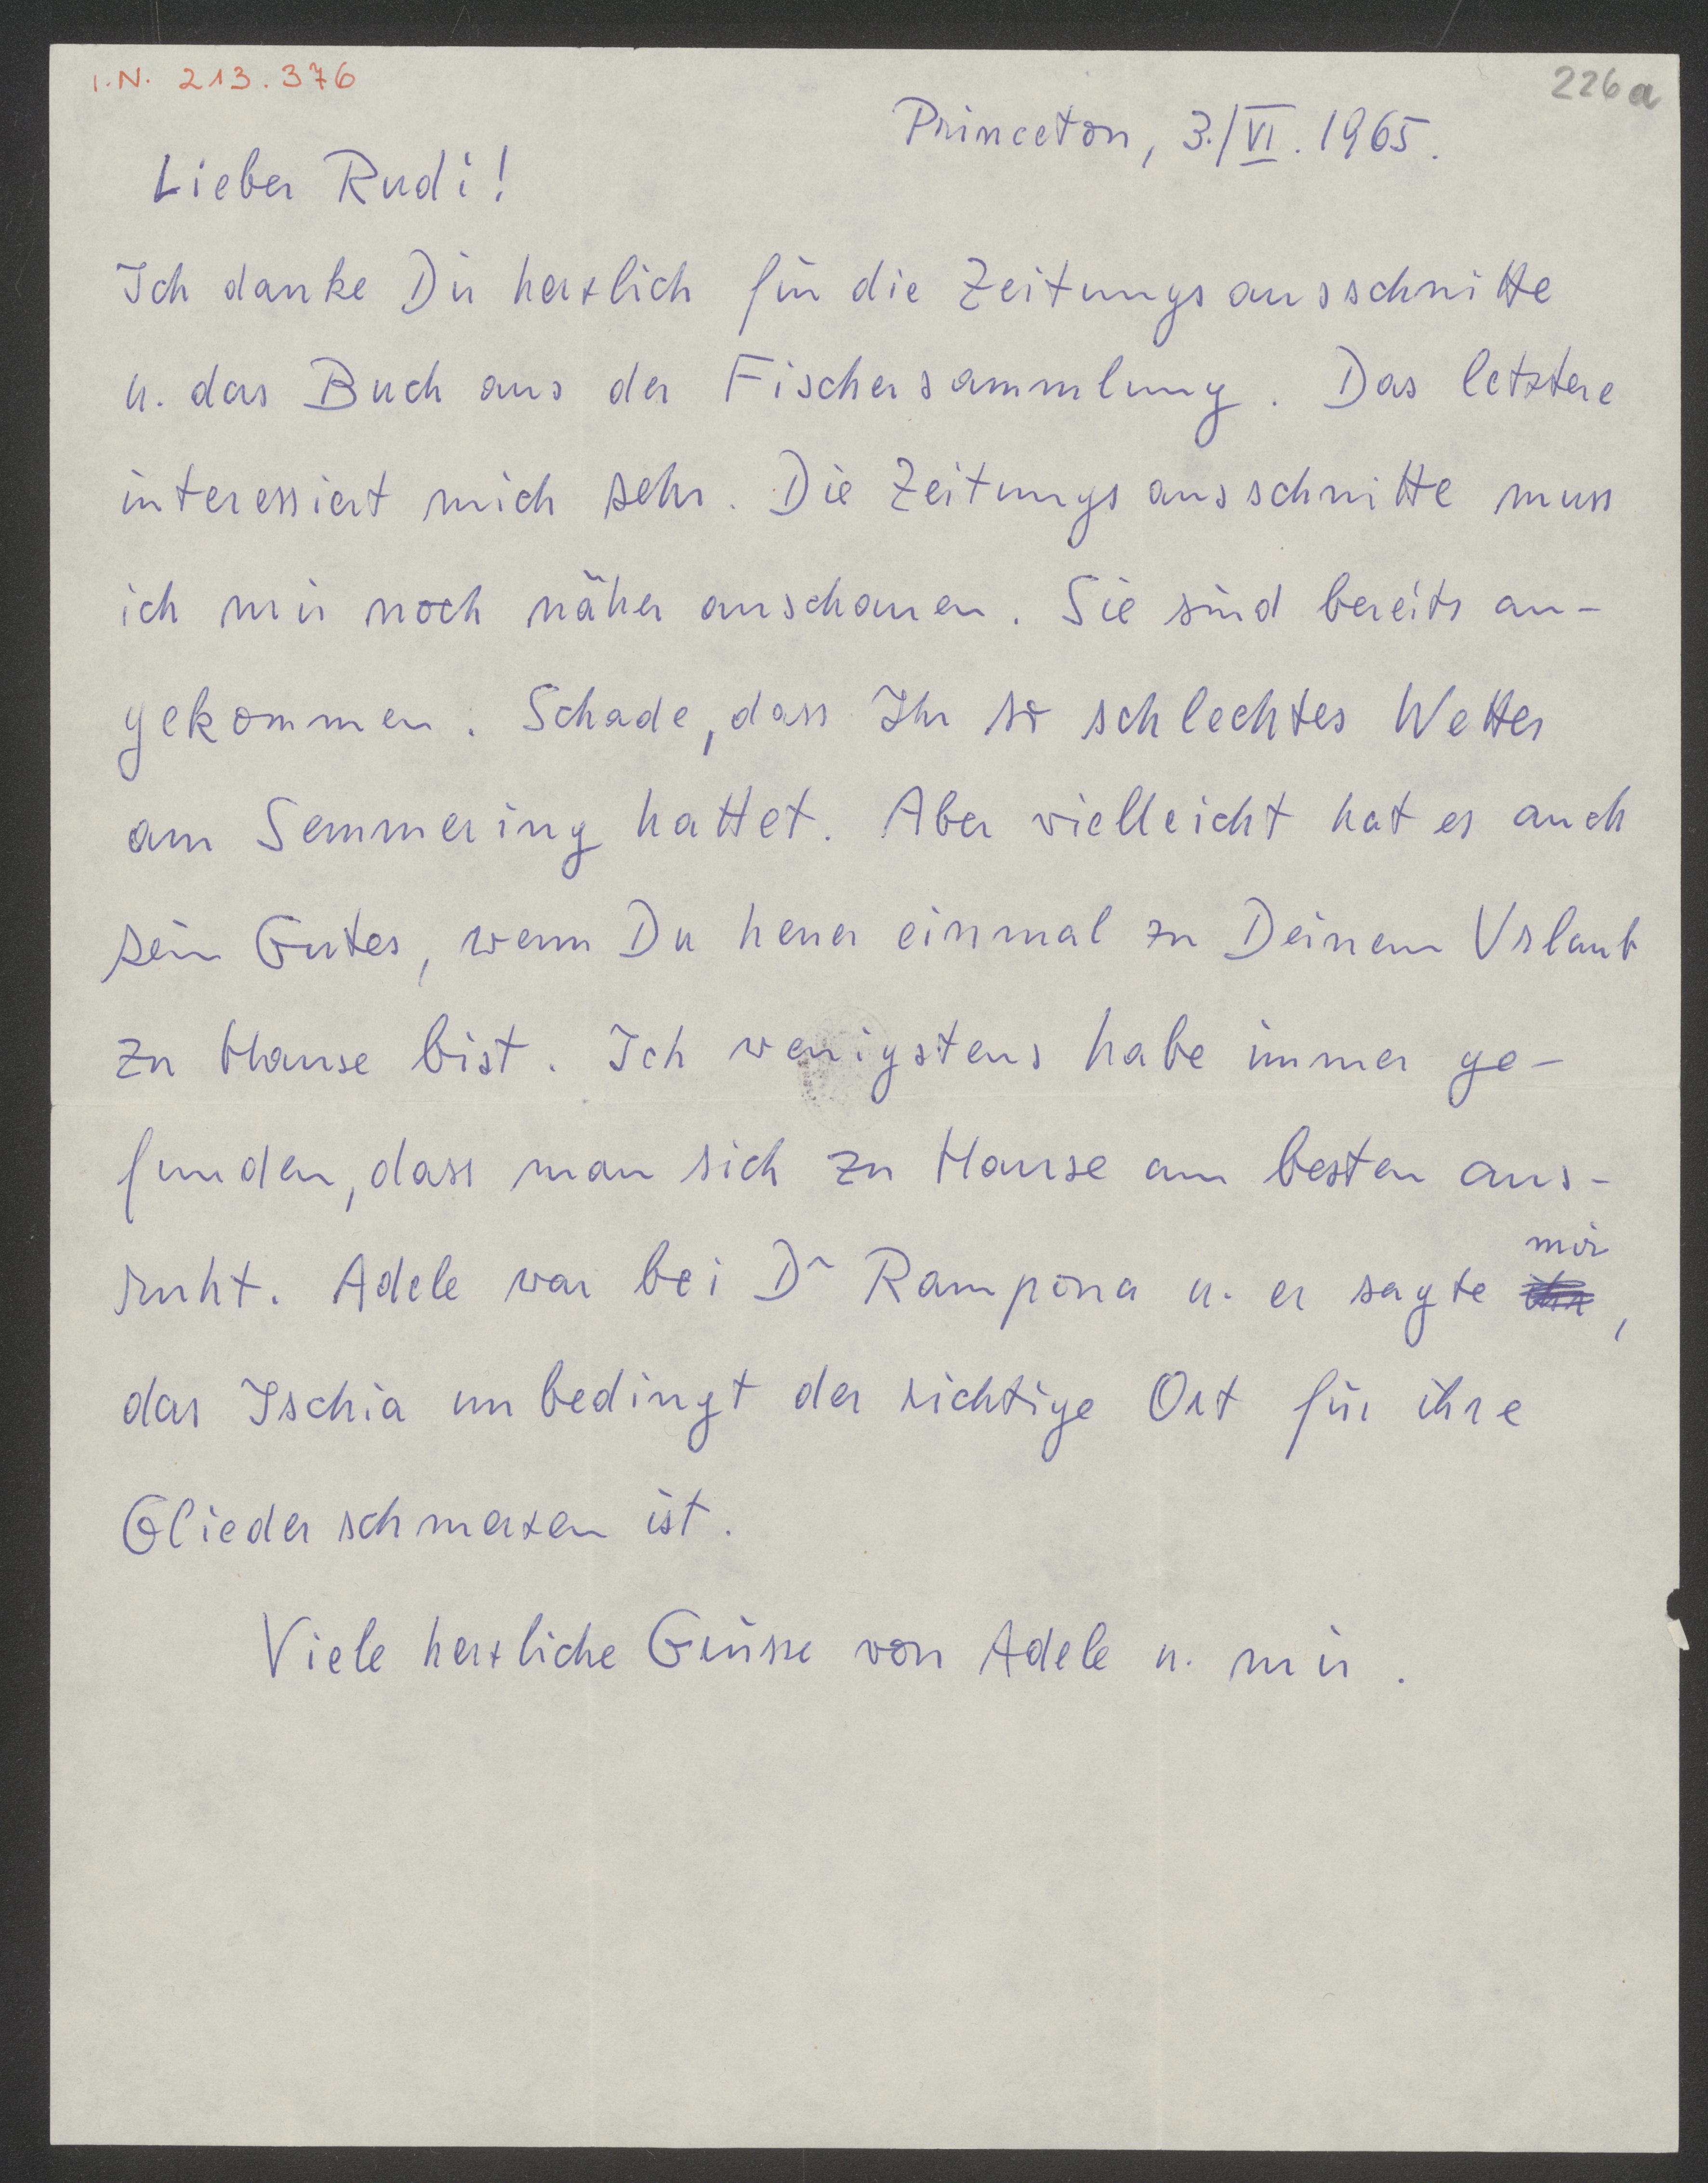 I.N. 213.376
226a
Princeton, 3./VI. 1965.
Lieber Rudi!
Ich danke Dir herzlich für die Zeitungsausschnitte
u. das Buch aus der Fischersammlung. Das letztere
interessiert mich sehr. Die Zeitungsausschnitte muss
ich mir noch näher anschauen. Sie sind bereits an-
gekommen. Schade, dass Ihr so schlechtes Wetter
am Semmering hattet. Aber vielleicht hat es auch
sein Gutes, wenn Du heuer einmal zu Deinem Urlaub
zu Hause bist. Ich wenigstens habe immer ge-
funden, dass man sich zu Hause am besten aus-
ruht. Adele war bei Dr Rampona u. er sagte mir,
das Ischia unbedingt der richtige Ort für ihre
Gliederschmerzen ist.
Viele herzliche Grüsse von Adele u. mir.